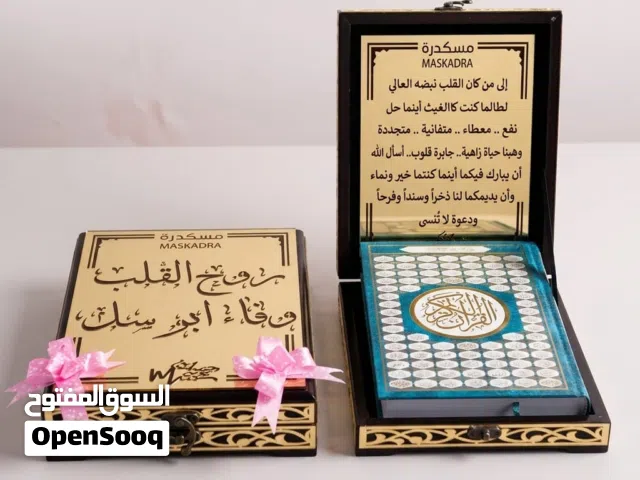 مسكدرة
MASKADRA
إلى من كان القلب نبضه العالي
لطالما كنت كالغيث أينما حل
نفع .. معطاء .. متفانية .. متجددة
وهبنا حياة زاهية.. جابرة قلوب.. أسأل الله
أن يبارك فيكما أينما كنتما خير ونماء
وأن يديمكما لنا ذخراً وسنداً وفرحاً
ودعوة لا تُنسى
مسكدرة
MASKADRA
روح القلب
وفاء ابو سل
القرآن الكريم
السوق المفتوح
OpenSooq